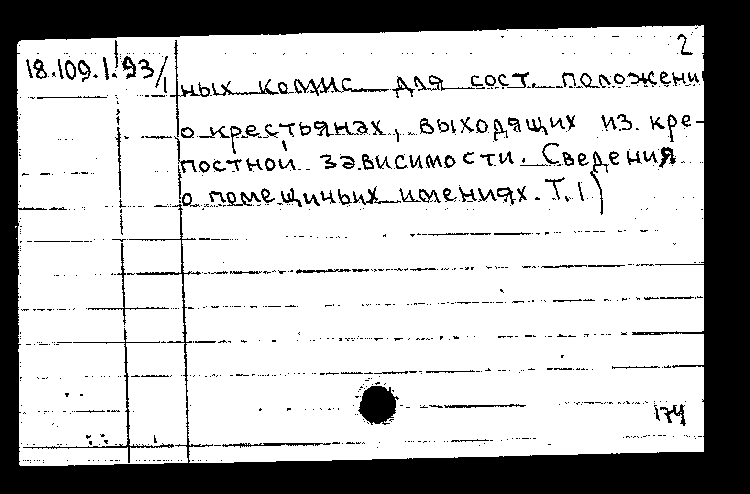 2
18.109.1.93/1 ных комис. для сост. положени
о крестьянах, выходящих из кре-
постной зависимости. Сведения
о помещичьих имениях. Т. 1)
174